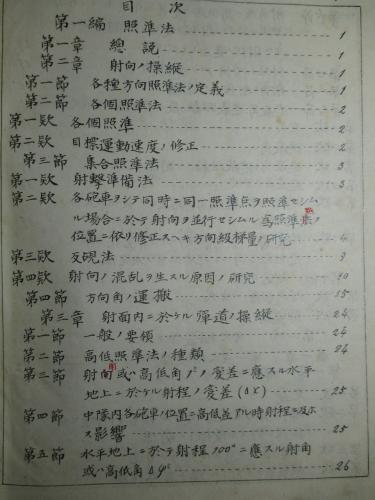 目次
第一編 照準法 1
第一章 總説 1
第二章 射向ノ操縦 1
第一節 各種方向照準法ノ定義 1
第二節 各個照準法 2
第一欵 各個照準 2
第二欵 目標運動速度ノ修正 2
第三節 集合照準法 3
第一欵 射撃準備法 3
第二欵 各砲車ヲシテ同時ニ同一照準点ヲ照準セシム
ル場合ニ於テ射向ヲ並行セシムル為照準点ノ
位置ニ依リ修正スヘキ方向級梯量ノ研究 4
第三欵 反覘法 9
第四欵 射向ノ混乱ヲ生スル原因ノ研究 10
第四節 方向角ノ運搬 15
第三章 射面内ニ於ケル弾道ノ操縦 24
第一節 一般ノ要領 24
第二節 高低照準法ノ種類 24
第三節 射角或ハ高低角ノ1°ノ変差ニ應スル水平
地上ニ於ケル射程ノ変差(ΔX) 25
第四節 中隊内各砲車ノ位置ニ高低差アル時射程ニ及ホ
ス影響 25
第五節 水平地上ニ於テ射程100ᵐニ應スル射角
或ハ高低角Δφ° 26